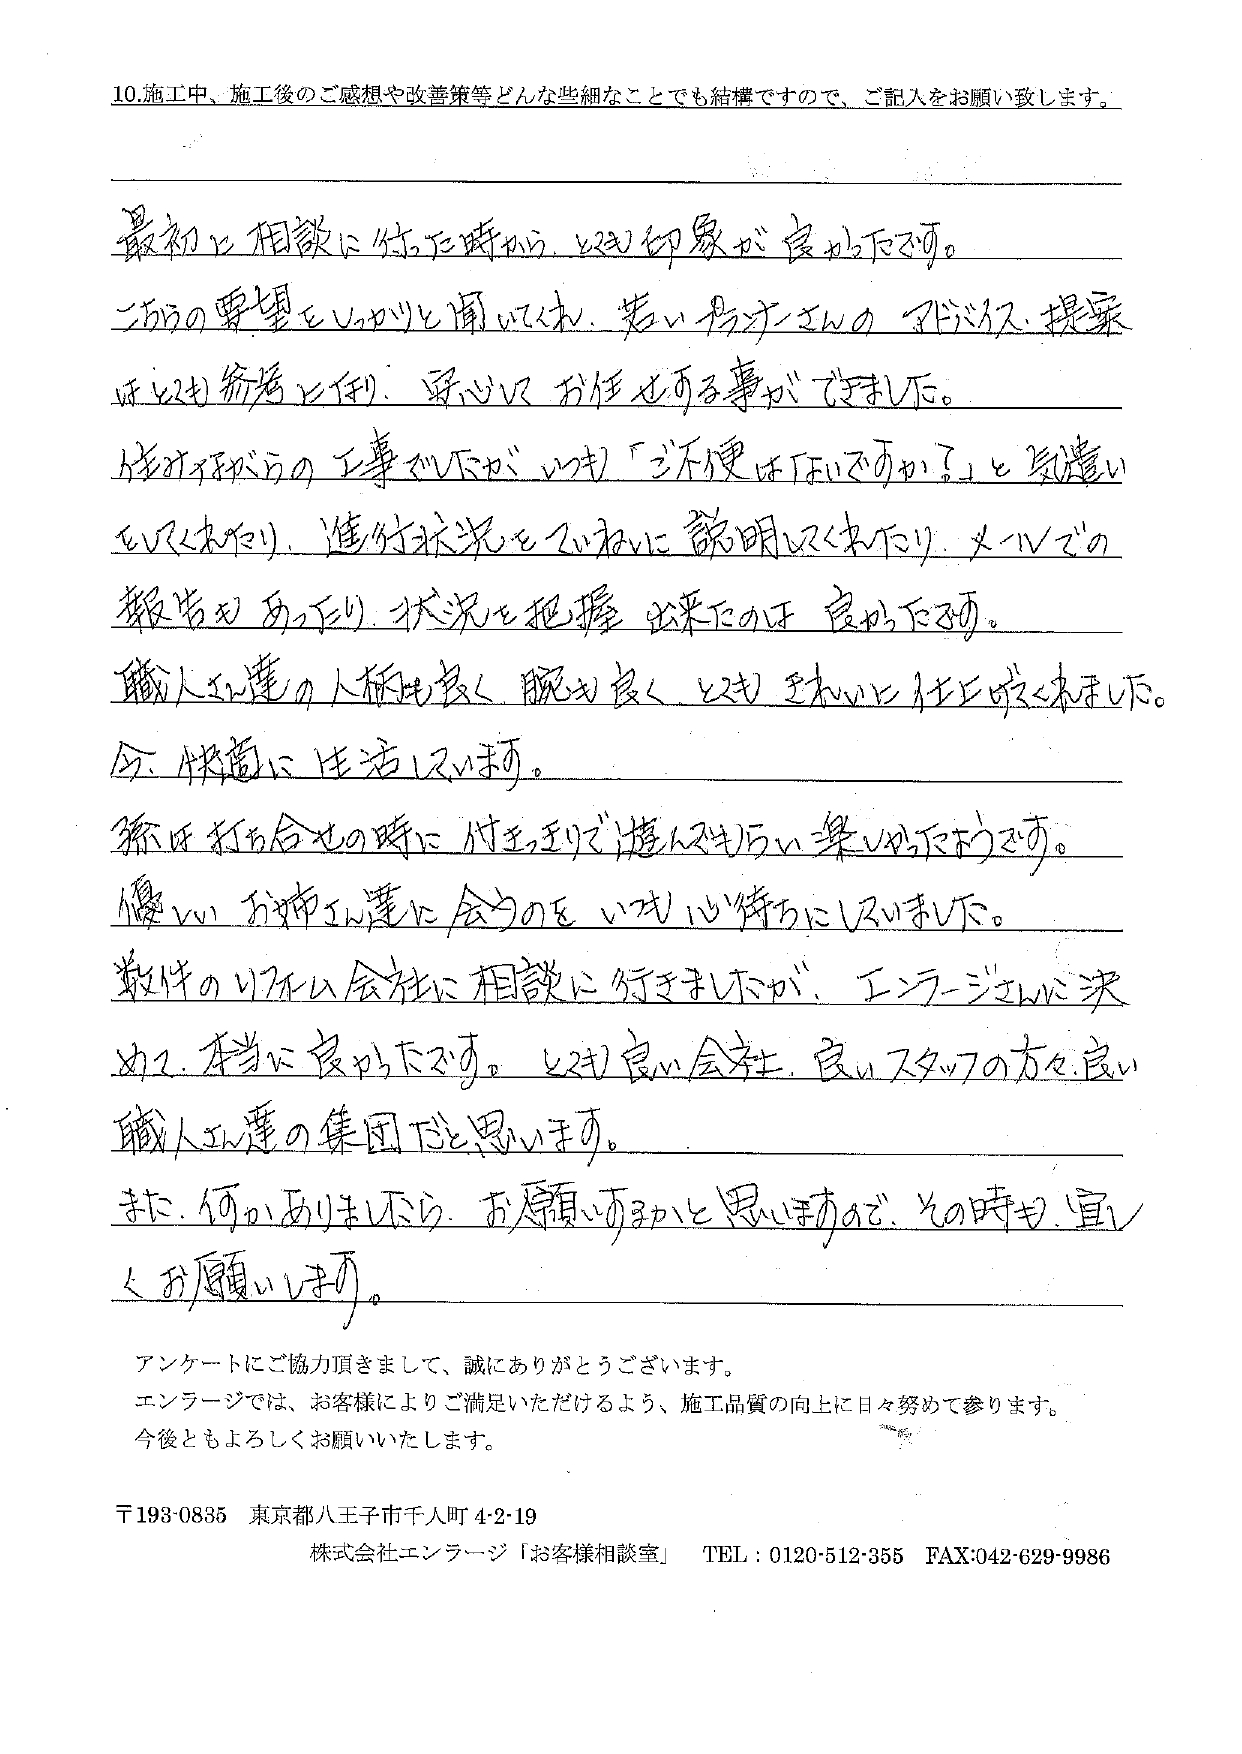 10.施工中、施工後のご感想や改善策等どんな些細なことでも結構ですので、ご記入をお願い致します。
最初に相談に行った時から、とても印象が良かったです。
こちらの要望をしっかりと聞いてくれ、若いプランナーさんのアドバイス・提案
はとても参考になり、安心してお任せする事ができました。
住みながらの工事でしたが いつも「ご不便はないですか？」と気遣い
をしてくれたり、進行状況をていねいに説明してくれたり、メールでの
報告もあったり、状況を把握出来たのは良かったです。
職人さん達の人柄も良く、腕も良く、とてもきれいに仕上げてくれました。
今、快適に生活しています。
孫は打ち合せの時に付きっきりで遊んでもらい楽しかったようです。
優しいお姉さん達に会うのをいつも心待ちにしていました。
数件のリフォーム会社に相談に行きましたが、エンラージさんに決
めて、本当に良かったです。とても良い会社、良いスタッフの方々、良い
職人さん達の集団だと思います。
また、何かありましたら、お願いするかと思いますので、その時も、宜し
くお願いします。
アンケートにご協力頂きまして、誠にありがとうございます。
エンラージでは、お客様によりご満足いただけるよう、施工品質の向上に日々努めて参ります。
今後ともよろしくお願いいたします。
〒193-0835 東京都八王子市千人町 4-2-19
株式会社エンラージ「お客様相談室」 TEL：0120-512-355 FAX:042-629-9986